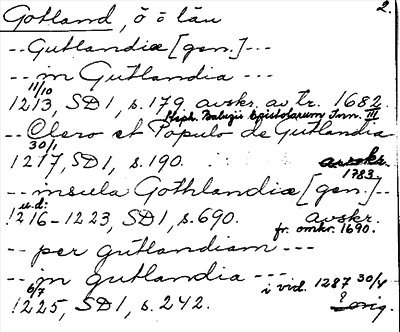 Gotland, ö o län 2.
-- Gutlandiæ [gen.] ---
-- in Gutlandia ---
11/10
1213, SD1, s. 179 avskr. av tr. 1682.
Steph. Baluzii Epistolarum Tom. III
-- Clero et Populo de Gutlandia
30/1
1217, SD1, s. 190. avskr.
1783.
-- insula Gothlandiæ [gen.] --
u.d.
1216-1223, SD1, s. 690. avskr.
fr. omkr. 1690.
-- per gutlandiam ---
-- in gutlandia ---
6/7
1225, SD1, s. 242. i vid. 1287 30/4
? orig.